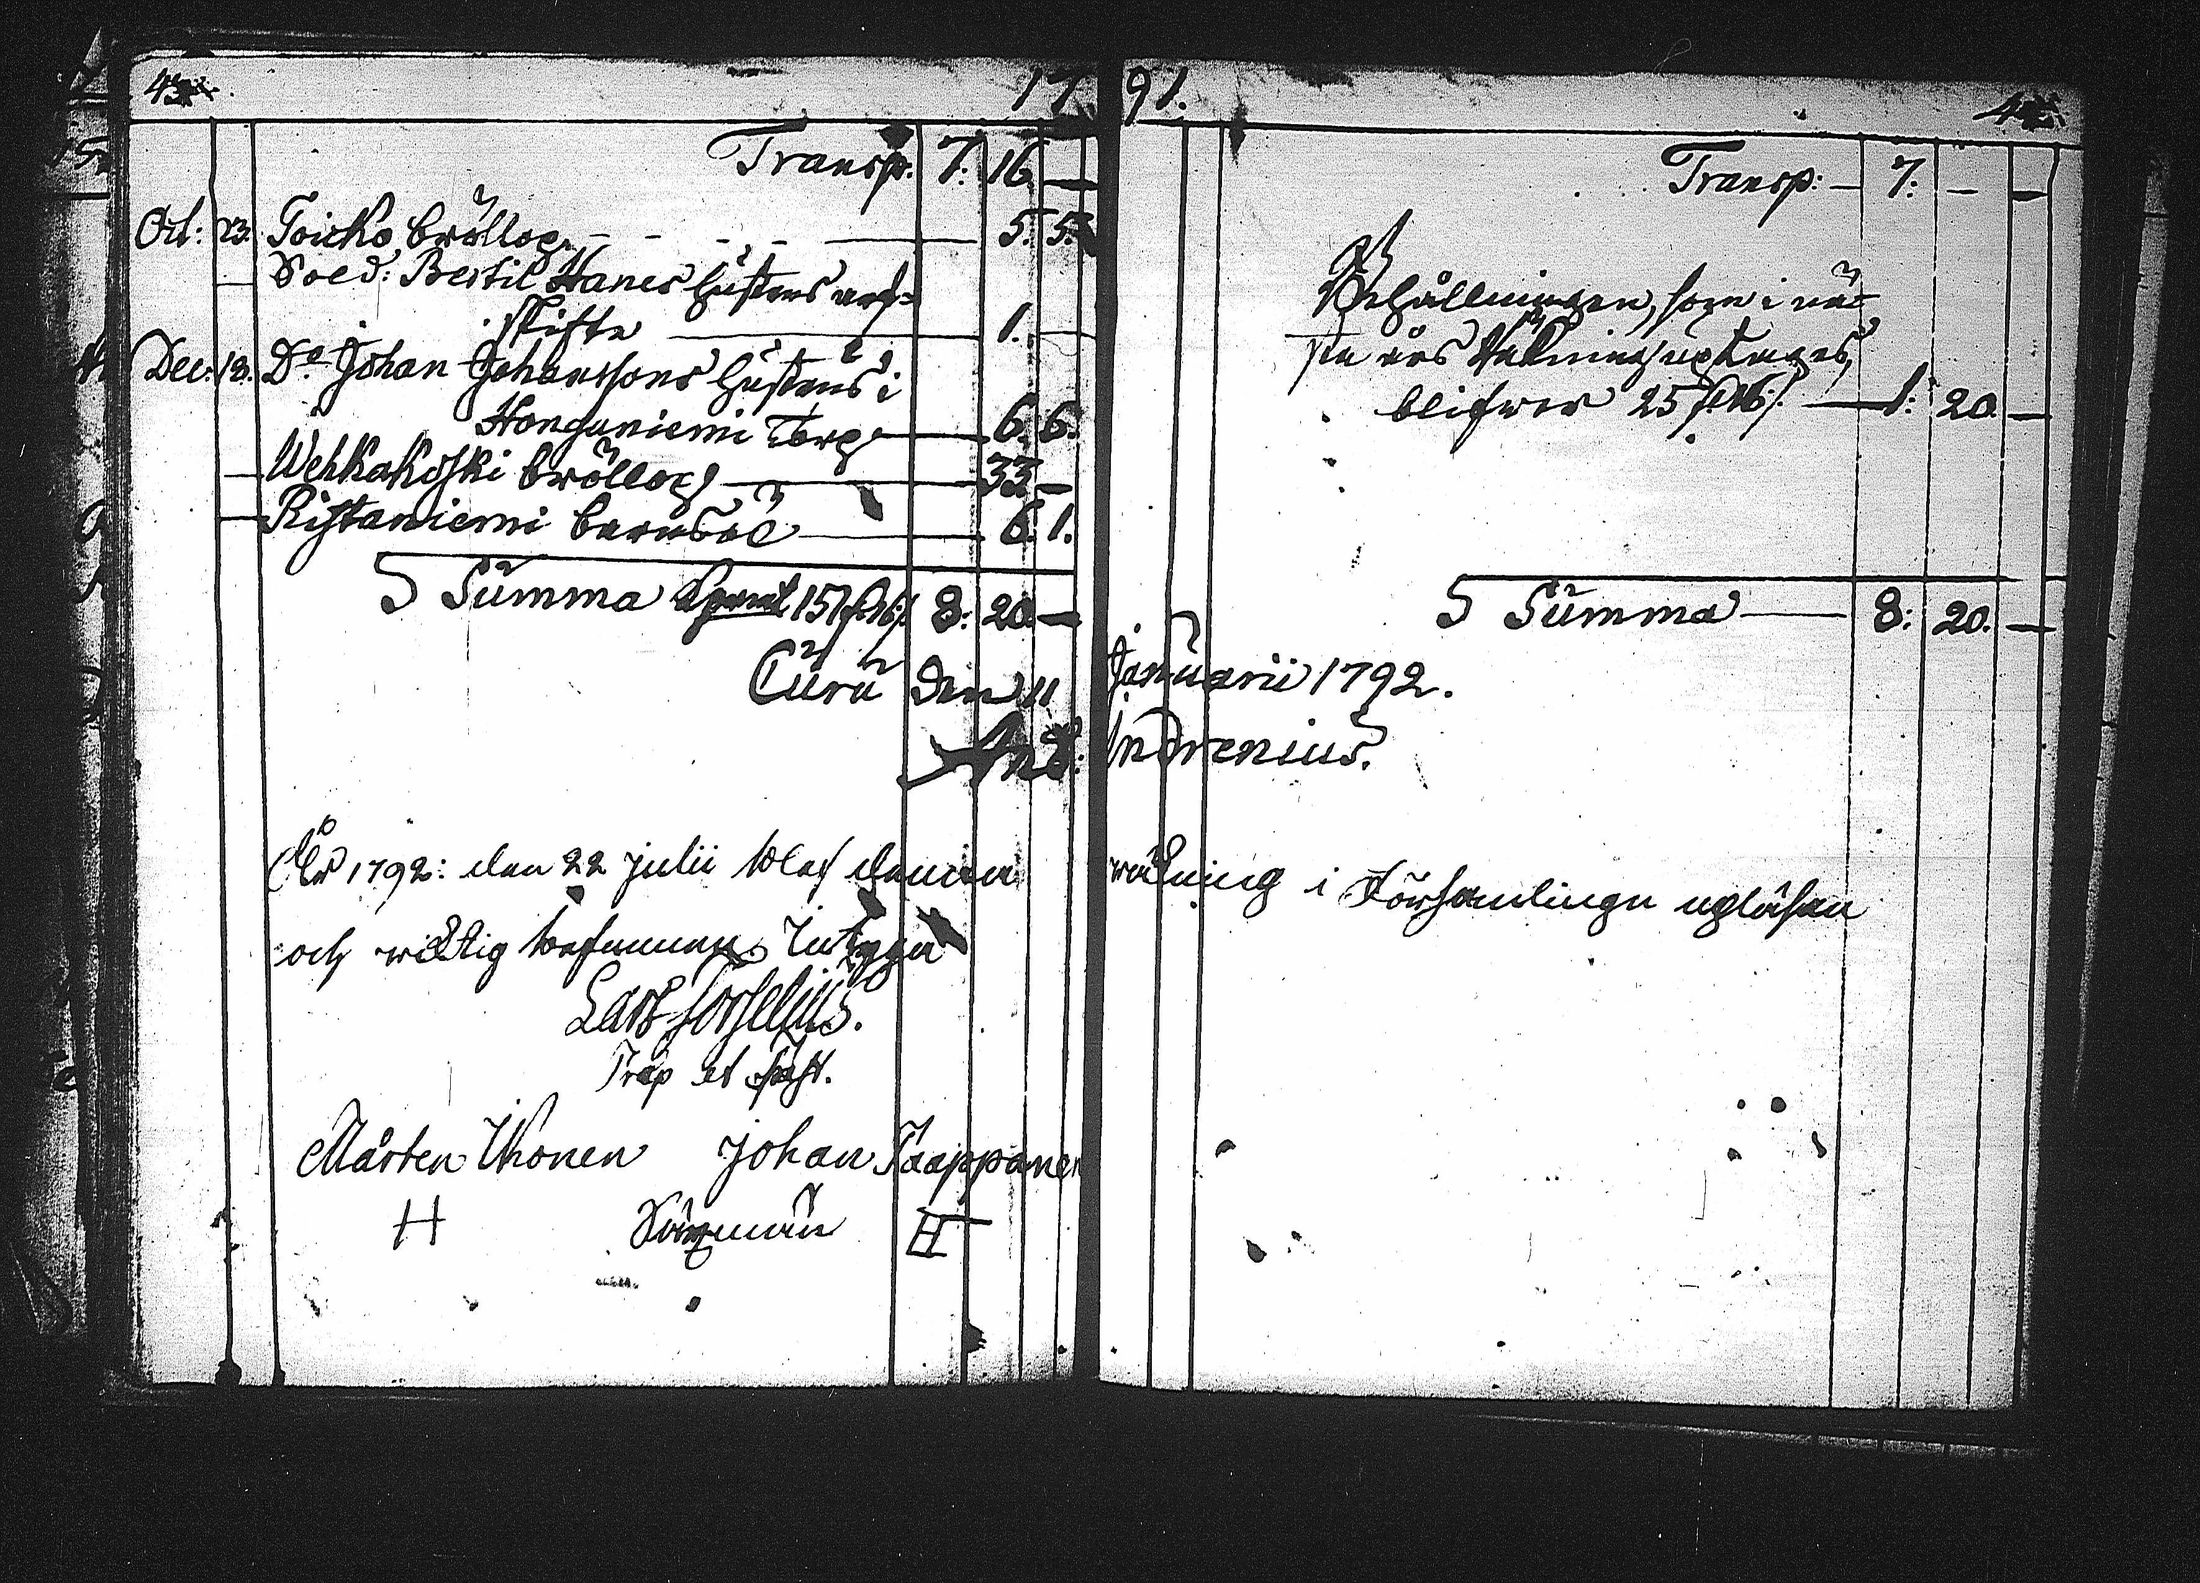 1791.
Transp: 7: 16 —
Oct: 23. Toicko bröllop — 5. 5.
— Sold: Bertil Hanes hustrus arf-
skifte — 1. —
Dec: 18. Do Johan Johanssons hustrus i
Honganiemi torp — 6. 6.
— Wehkakoski bröllop — 33 —
— Ristaniemi barnsöl — 6. 1.
Summa 8: 20 —
Transp: — 7: — —
Behållningen, som i nä-
sta års Räkning uptages,
blifwer 25 — 1: 20 —
Summa — 8: 20. —
Curu den 11 Januarii 1792.
And: Indrenius.
År 1792: den 22 julii blef denna räkning i Församlingen upläsen
och richtig befunnen. Intyga
Lars Forselius.
Præp et Past.
Mårten Ikonen Johan Taappanen
H Sexmän H